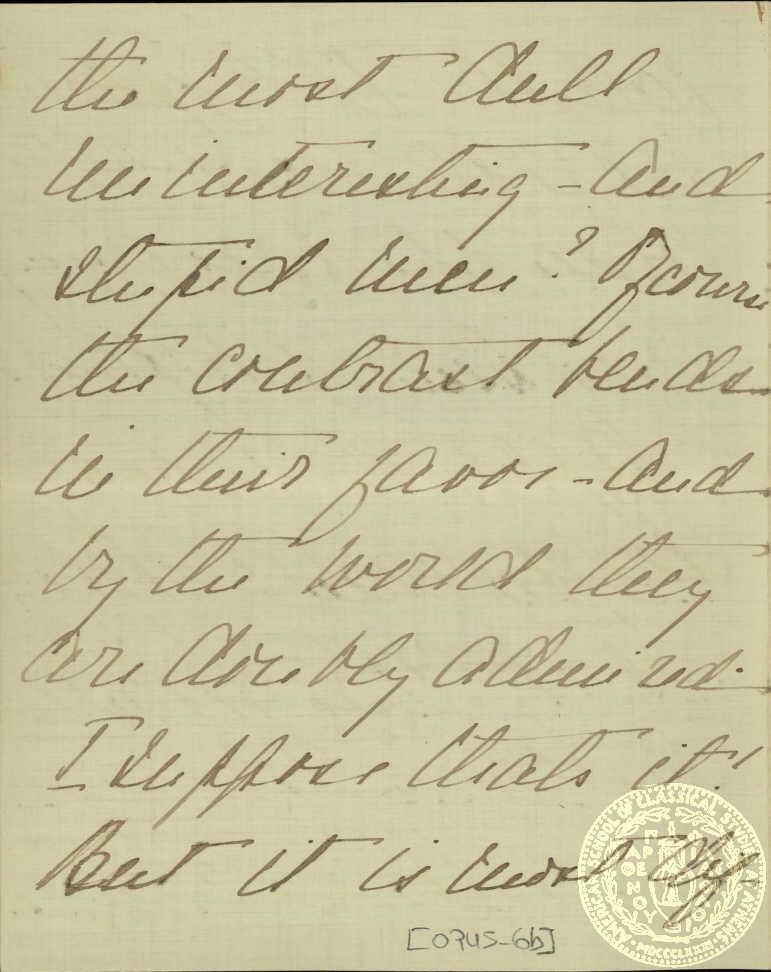 the most dull
uninteresting - and
stupid men? Of course
the contrast tends
in their favor - and
by the world they
are doubly admired.
I suppose thats it!
But it is most
AMERICAN SCHOOL OF CLASSICAL STUDIES AT ATHENS
MDCCCLXXXI
ΠΑΡΘΕΝΟΥ
[0745-6b]